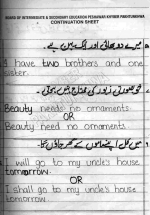 BOARD OF INTERMEDIATE & SECONDARY EDUCATION PESHAWAR KHYBER PAKHTUNKHWA
CONTINUATION SHEET
میرے دو بھائی اور ایک بہن ہے۔
I have two brothers and one
sister.
خوبصورتی زیور کی محتاج نہیں ہوتی۔
Beauty needs no ornaments.
OR
Beauty need no ornaments.
میں کل اپنے چچا کے گھر جاؤں گا۔
I will go to my uncle's house
tomorrow.
OR
I shall go to my uncle's house
tomorrow.